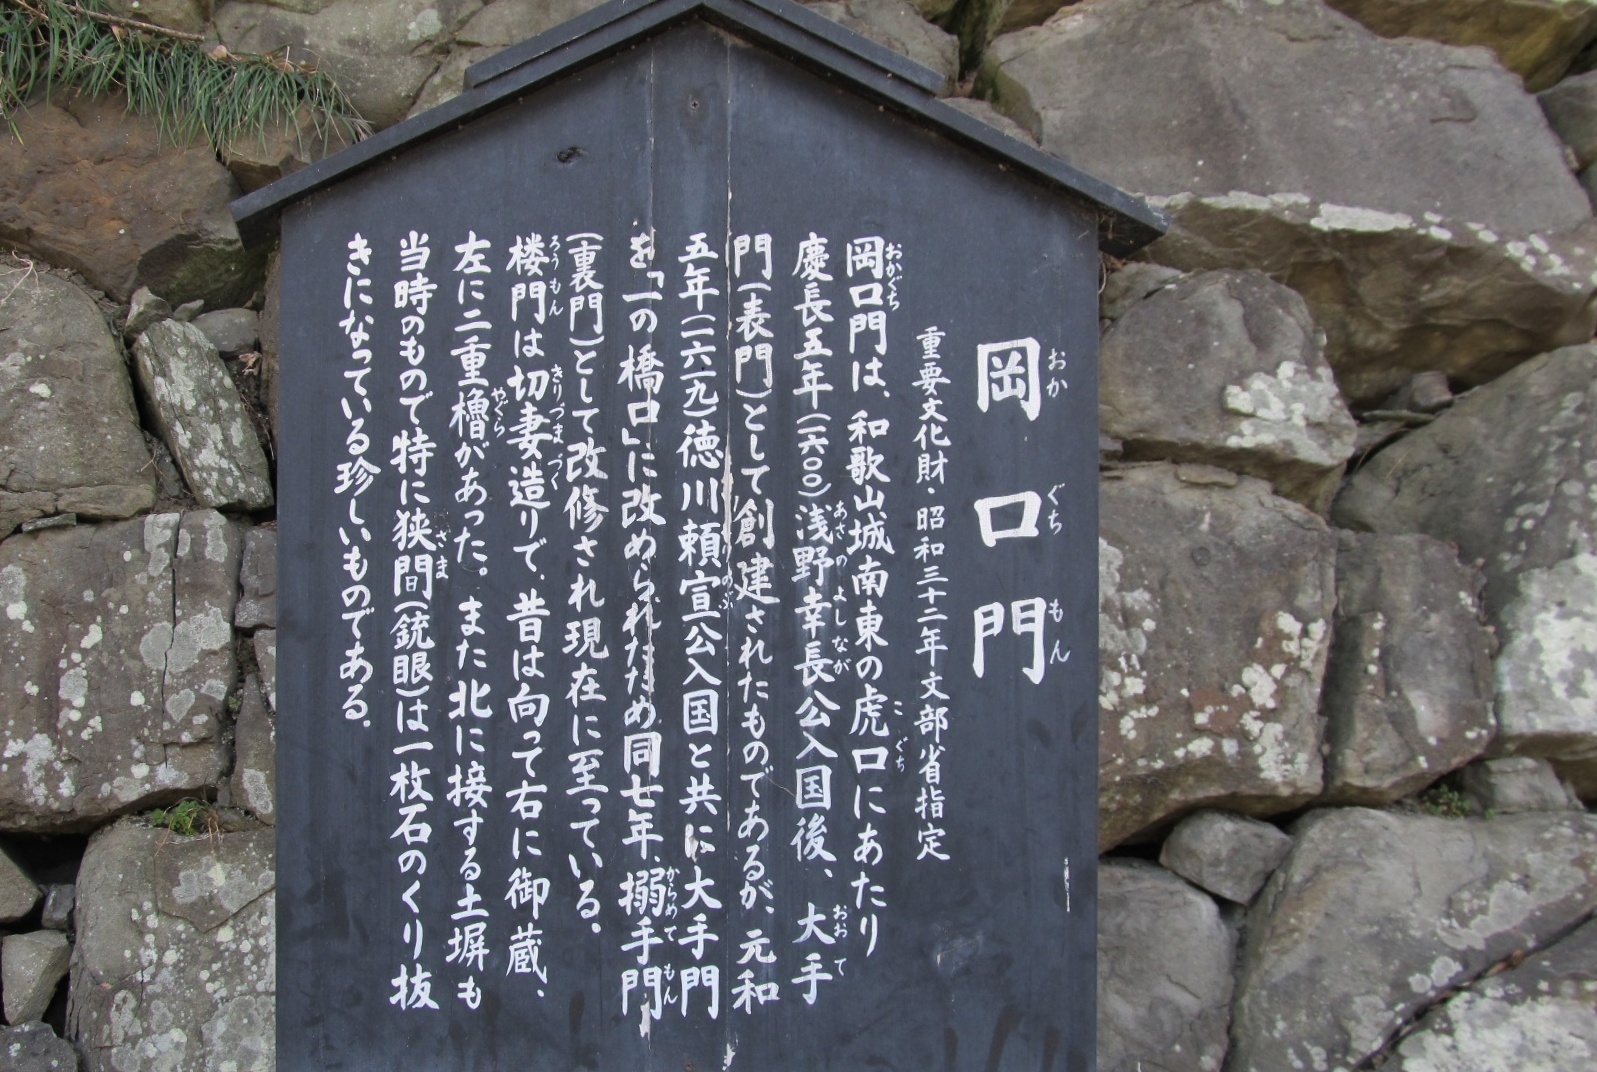 岡口門
おか ぐち もん
重要文化財・昭和三十二年文部省指定
岡口門は、和歌山城南東の虎口にあたり
おかぐち こぐち
慶長五年(一六〇〇)浅野幸長公入国後、大手
あさのよしなが おおて
門(表門)として創建されたものであるが、元和
五年(一六一九)徳川頼宣公入国と共に大手門
よりのぶ
を「一の橋口」に改められたため同七年、搦手門
からめてもん
(裏門)として改修され現在に至っている。
楼門は切妻造りで、昔は向って右に御蔵、
ろうもん きりづまづく
左に二重櫓があった。また北に接する土塀も
やぐら
当時のもので特に狭間(銃眼)は一枚石のくり抜
ざま
きになっている珍しいものである。